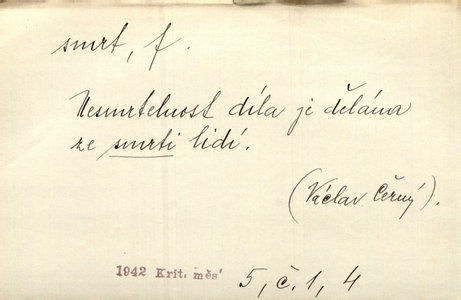 smrt, f.
Nesmrtelnost díla je dělána
ze smrti lidí.
(Václav Černý).
1942 Krit. měs' 5, č. 1, 4